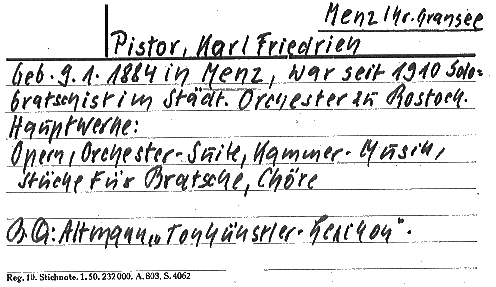 Menz Kr. Gransee
Pistor, Karl Friedrich
Geb. 9.1.1884 in Menz, war seit 1910 Solo=
bratschist im Städt. Orchester zu Rostock.
Hauptwerke:
Opern, Orchester-Suite, Kammer-Musik,
Stücke für Bratsche, Chöre
B.Q: Altmann „Tonkünstler-Lexikon".
Reg. 10. Stichnote. 1. 50. 232000. A. 803. S. 4062